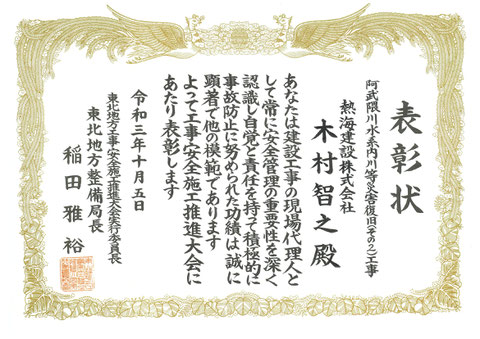 表彰状
阿武隈川水系内川等災害復旧(その2)工事
熱海建設株式会社
木村智之殿
あなたは建設工事の現場代理人と
して常に安全管理の重要性を深く
認識し自覚と責任を持って積極的に
事故防止に努められた功績は誠に
顕著で他の模範であります
よって工事安全施工推進大会に
あたり表彰します
令和三年十月五日
東北地方工事安全施工推進大会実行委員長
東北地方整備局長
稲田雅裕